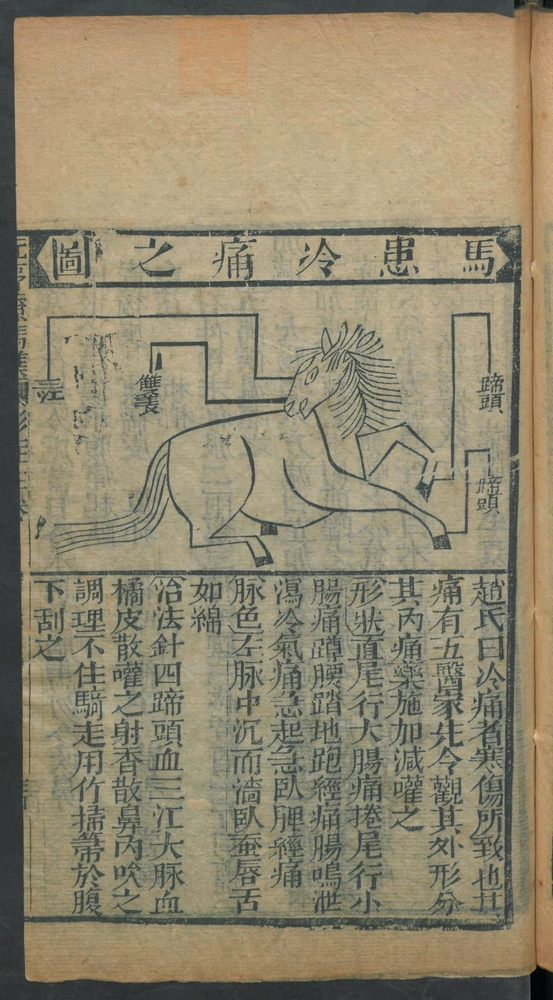 馬患冷痛之圖
蹄頭
蹄頭
雙夹
三江
趙氏曰冷痛者寒傷所致也其
痛有五醫家先令觀其外形分
其內痛藥施加減嚾之
形狀直尾行大腸痛捲尾行小
腸痛蹲腰踏地跑經痛腸鳴泄
瀉冷氣痛急起急臥脾經痛
脉色左脉中沉而濇臥蚕唇舌
如綿
治法針四蹄頭血三江大脉血
橘皮散嚾之射香散鼻內吹之
調理不住騎走用竹掃箒於腹
下刮之